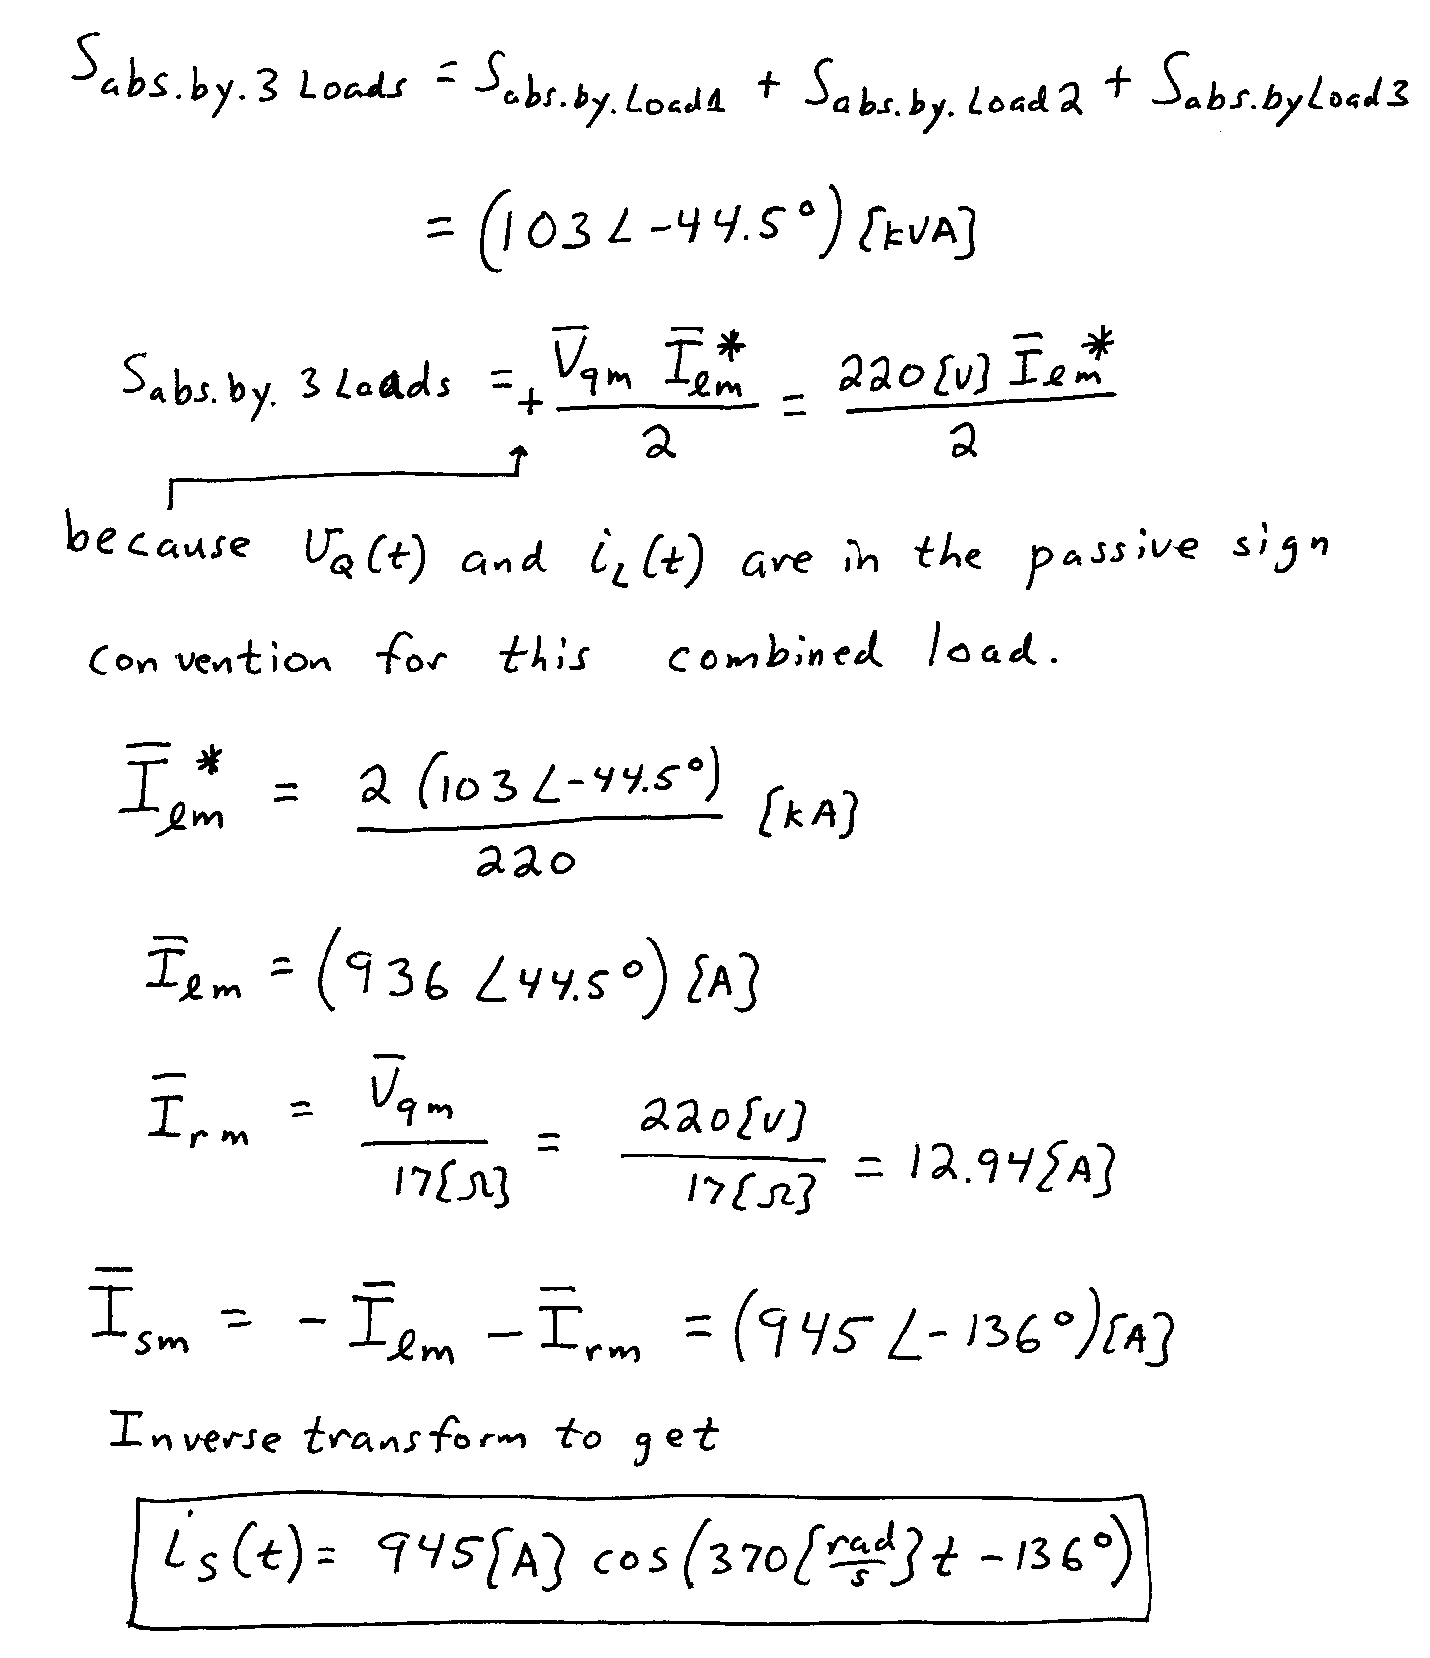 S_abs.by.3 Loads = S_abs.by.Load1 + S_abs.by.Load2 + S_abs.byLoad3
= (103∠-44.5°)[kVA]
S_abs.by.3 Loads = + V̅_qm I̅_lm* / 2 = 220[V] I̅_lm* / 2
because v_Q(t) and i_L(t) are in the passive sign
convention for this combined load.
I̅_lm* = 2(103∠-44.5°) / 220 [kA]
I̅_lm = (936∠44.5°)[A]
I̅_rm = V̅_qm / 17[Ω] = 220[V] / 17[Ω] = 12.94[A]
I̅_sm = -I̅_lm - I̅_rm = (945∠-136°)[A]
Inverse transform to get
i_s(t) = 945[A] cos(370[rad/s]t - 136°)